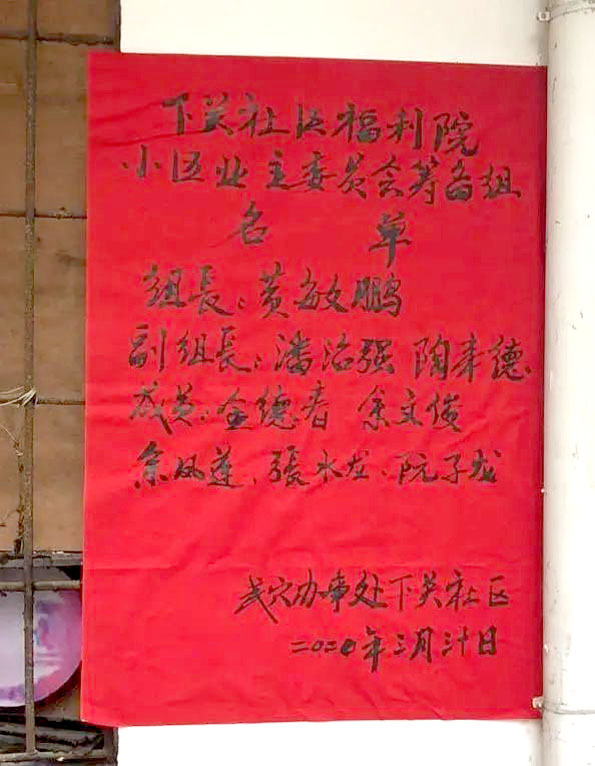 下关社区福利院
小区业主委员会筹备组
名 单
组長:黄敏鹏
副组長:潘治强 陶来德
成员:金德春 余文俊
余凤莲、張水龙、阮子龙
武穴办事处下关社区
二0二0年三月卅日